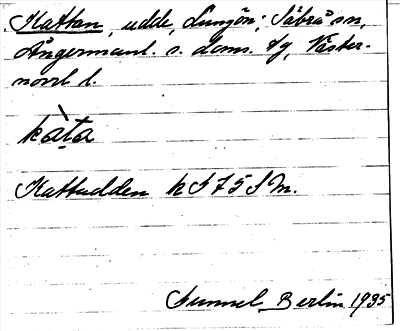 Kattan, udde, Lungön; Säbrå sn,
Ångermanl. s. doms. tg, Väster-
norrl. l.
kàta
Kattudden k S 75 S M.
Berlin 1935